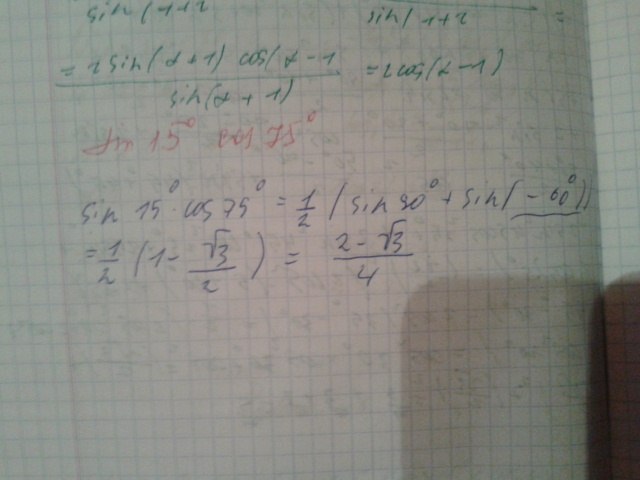 sin(1+2 sin(1+2 =
= 2 sin(α+1) cos(α-1 / sin(α+1) = 2cos(α-1)
sin 15° cos 75°
sin 15° · cos 75° = 1/2 (sin 90° + sin(-60°))
= 1/2 (1 - √3/2) = 2-√3/4